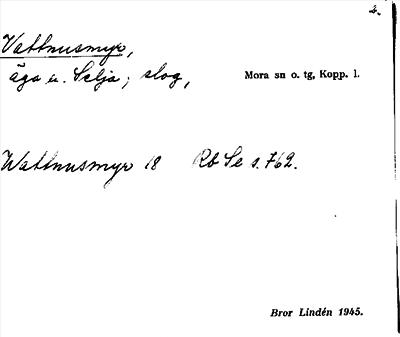 2.
Vattnusmyr,
äga u. Selja; slog,
Mora sn o. tg, Kopp. l.
Wattnusmyr 18 Rb Se s. 762.
Bror Lindén 1945.